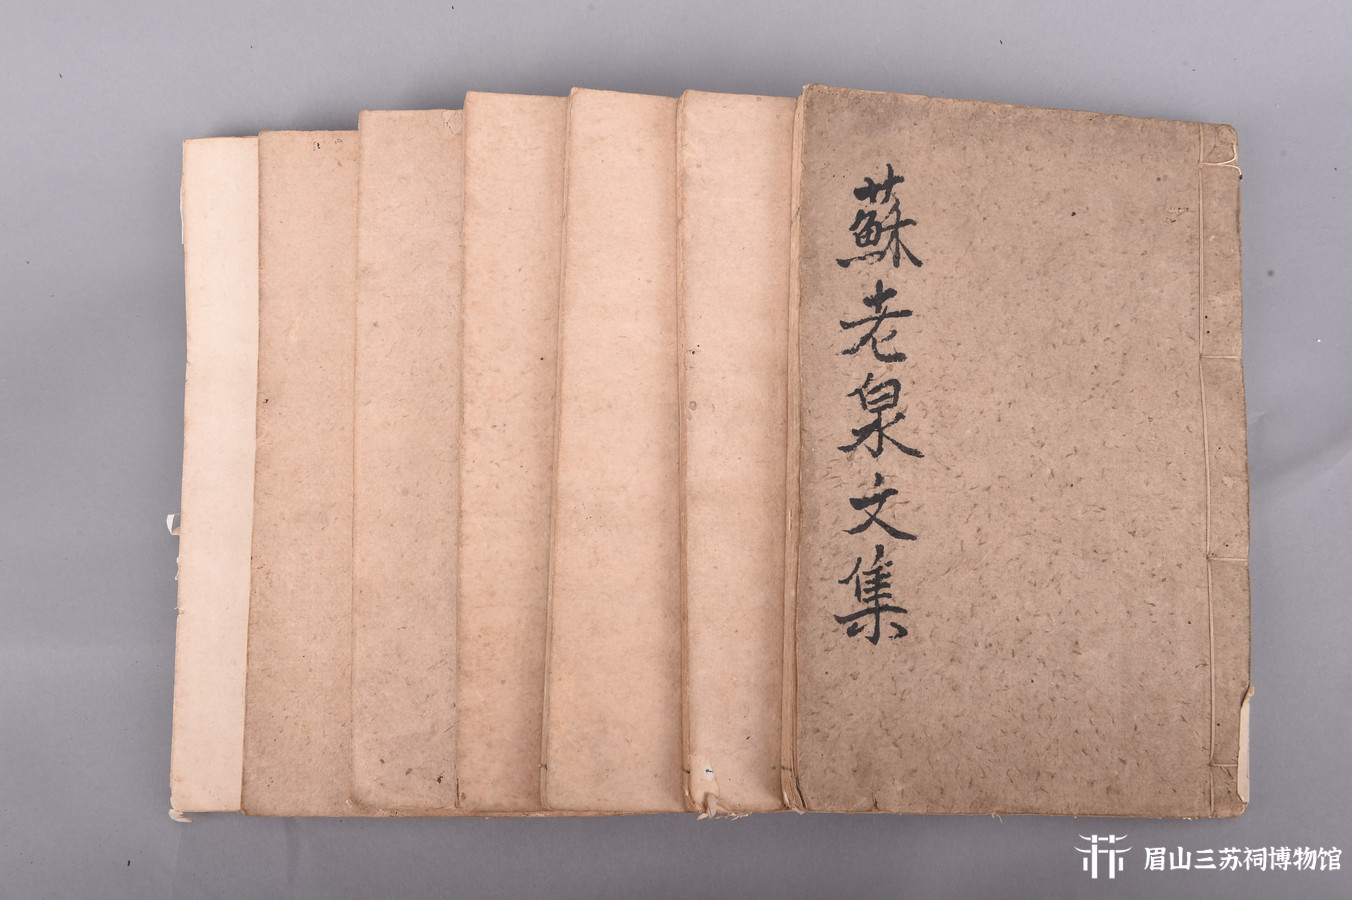 蘇老泉文集
眉山三苏祠博物馆